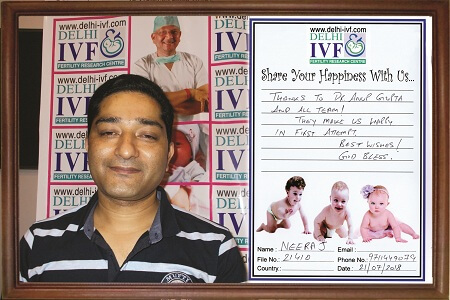 www.delhi-ivf.com
DELHI
IVF
FERTILITY RESEARCH CENTRE
www.delhi-ivf.com
DELHI
IVF
FERTILITY RESEARCH CENTRE
www.delhi-ivf.com
DELHI
IVF
www.delhi-ivf.com
DELHI
IVF
FERTILITY RESEARCH CENTRE
www.delhi-ivf.com
DELHI
IVF
FERTILITY RESEARCH CENTRE
www.delhi-ivf.com
DELHI
IVF
www.delhi-ivf.com
DELHI
IVF
FERTILITY RESEARCH CENTRE
Share Your Happiness With Us...
THANKS TO DR ANUP GUPTA
AND ALL TEAM!
THEY MAKE US HAPPY
IN FIRST ATTEMPT.
BEST WISHES!
GOD BLESS.
Name: NEERAJ Email:
File No: 21410 Phone No.
Country: Date: 21/07/2018